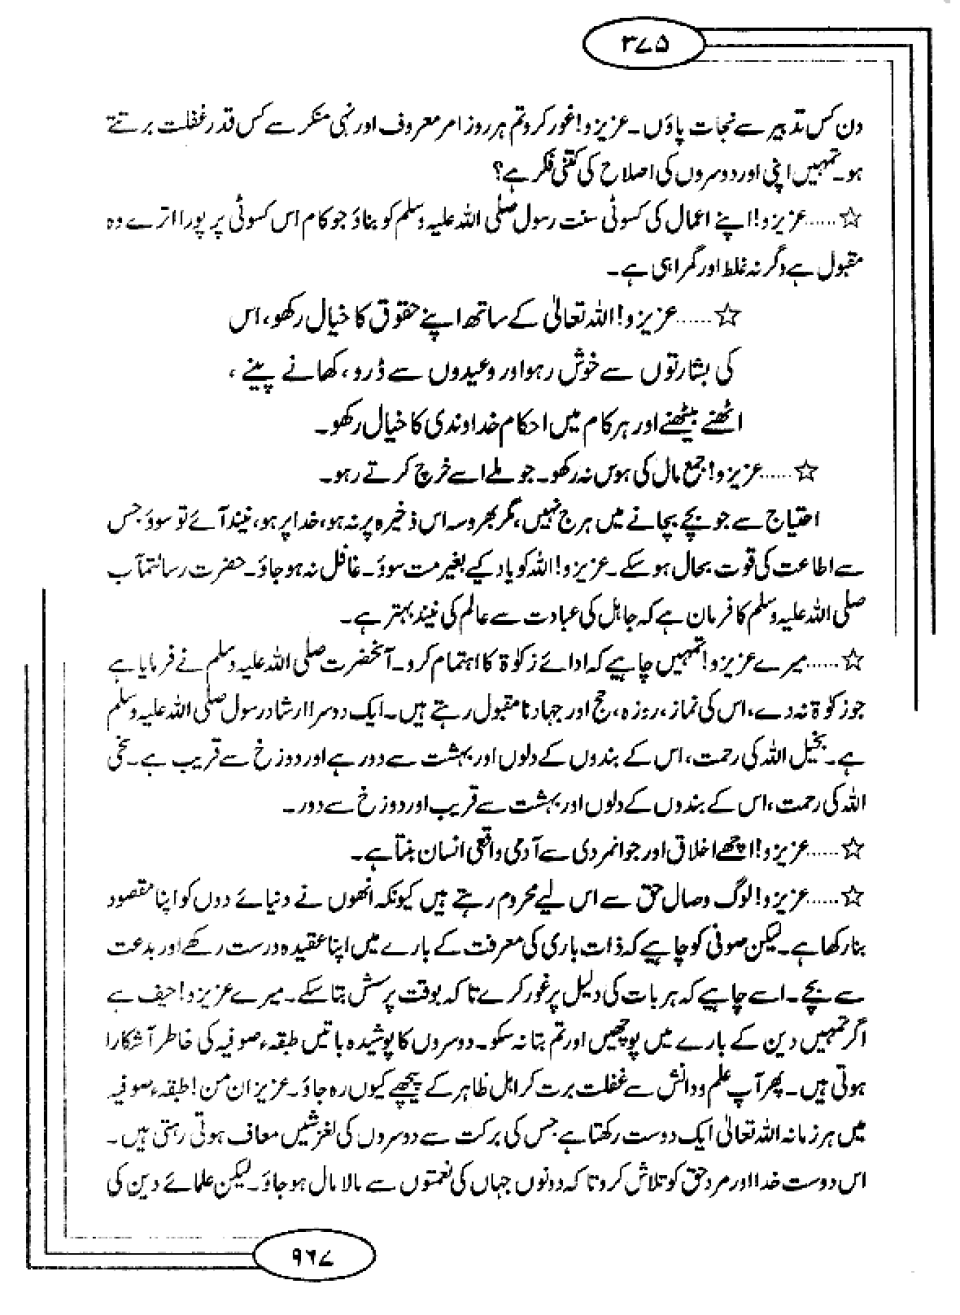 ۳۷۵
دن کس تدبیر سے نجات پاؤں۔ عزیزو! غور کرو تم ہر روز امر معروف اور نہی منکر سے کس قدر غفلت برتتے
ہو۔ تمہیں اپنی اور دوسروں کی اصلاح کی کتنی فکر ہے؟
☆.....عزیزو! اپنے اعمال کی کسوٹی سنت رسول صلی اللہ علیہ وسلم کو بناؤ جو کام اس کسوٹی پر پورا اترے وہ
مقبول ہے وگر نہ غلط اور گمراہی ہے۔
☆......عزیزو! اللہ تعالیٰ کے ساتھ اپنے حقوق کا خیال رکھو، اس
کی بشارتوں سے خوش رہو اور وعیدوں سے ڈرو، کھانے پینے،
اٹھنے بیٹھنے اور ہر کام میں احکام خداوندی کا خیال رکھو۔
☆.....عزیزو! جمع مال کی ہوس نہ رکھو۔ جو ملے اسے خرچ کرتے رہو۔
احتیاج سے جو بچے بچانے میں ہرج نہیں، مگر بھروسہ اس ذخیرہ پر نہ ہو، خدا پر ہو، نیند آئے تو سوؤ جس
سے اطاعت کی قوت بحال ہو سکے۔ عزیزو! اللہ کو یاد کیے بغیر مت سوؤ۔ غافل نہ ہو جاؤ۔ حضرت رسالتمآب
صلی اللہ علیہ وسلم کا فرمان ہے کہ جاہل کی عبادت سے عالم کی نیند بہتر ہے۔
☆.....میرے عزیزو! تمہیں چاہیے کہ ادائے زکوٰۃ کا اہتمام کرو۔ آنحضرت صلی اللہ علیہ وسلم نے فرمایا ہے
جو زکوٰۃ نہ دے، اس کی نماز، روزہ، حج اور جہاد نا مقبول رہتے ہیں۔ ایک دوسرا ارشاد رسول صلی اللہ علیہ وسلم
ہے۔ بخیل اللہ کی رحمت، اس کے بندوں کے دلوں اور بہشت سے دور ہے اور دوزخ سے قریب ہے۔ سخی
اللہ کی رحمت، اس کے بندوں کے دلوں اور بہشت سے قریب اور دوزخ سے دور۔
☆.....عزیزو! اچھے اخلاق اور جوانمردی سے آدمی واقعی انسان بنتا ہے۔
☆.....عزیزو! لوگ وصال حق سے اس لیے محروم رہتے ہیں کیونکہ انھوں نے دنیائے دوں کو اپنا مقصود
بنا رکھا ہے۔ لیکن صوفی کو چاہیے کہ ذات باری کی معرفت کے بارے میں اپنا عقیدہ درست رکھے اور بدعت
سے بچے۔ اسے چاہیے کہ ہر بات کی دلیل پر غور کرے تاکہ بوقت پرسش بتا سکے۔ میرے عزیزو! حیف ہے
اگر تمہیں دین کے بارے میں پوچھیں اور تم بتا نہ سکو۔ دوسروں کا پوشیدہ باتیں طبقۂ صوفیہ کی خاطر آشکارا
ہوتی ہیں۔ پھر آپ علم و دانش سے غفلت برت کر اہل ظاہر کے پیچھے کیوں رہ جاؤ۔ عزیزان من! طبقۂ صوفیہ
میں ہر زمانہ اللہ تعالیٰ ایک دوست رکھتا ہے جس کی برکت سے دوسروں کی لغزشیں معاف ہوتی رہتی ہیں۔
اس دوست خدا اور مرد حق کو تلاش کرو تا کہ دونوں جہاں کی نعمتوں سے مالا مال ہو جاؤ۔ لیکن علمائے دین کی
۹۶۷